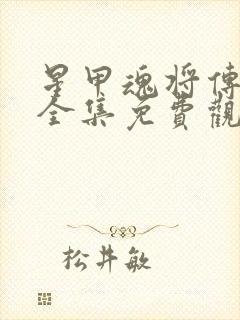 星甲魂将傳
全集免費觀
松井敏